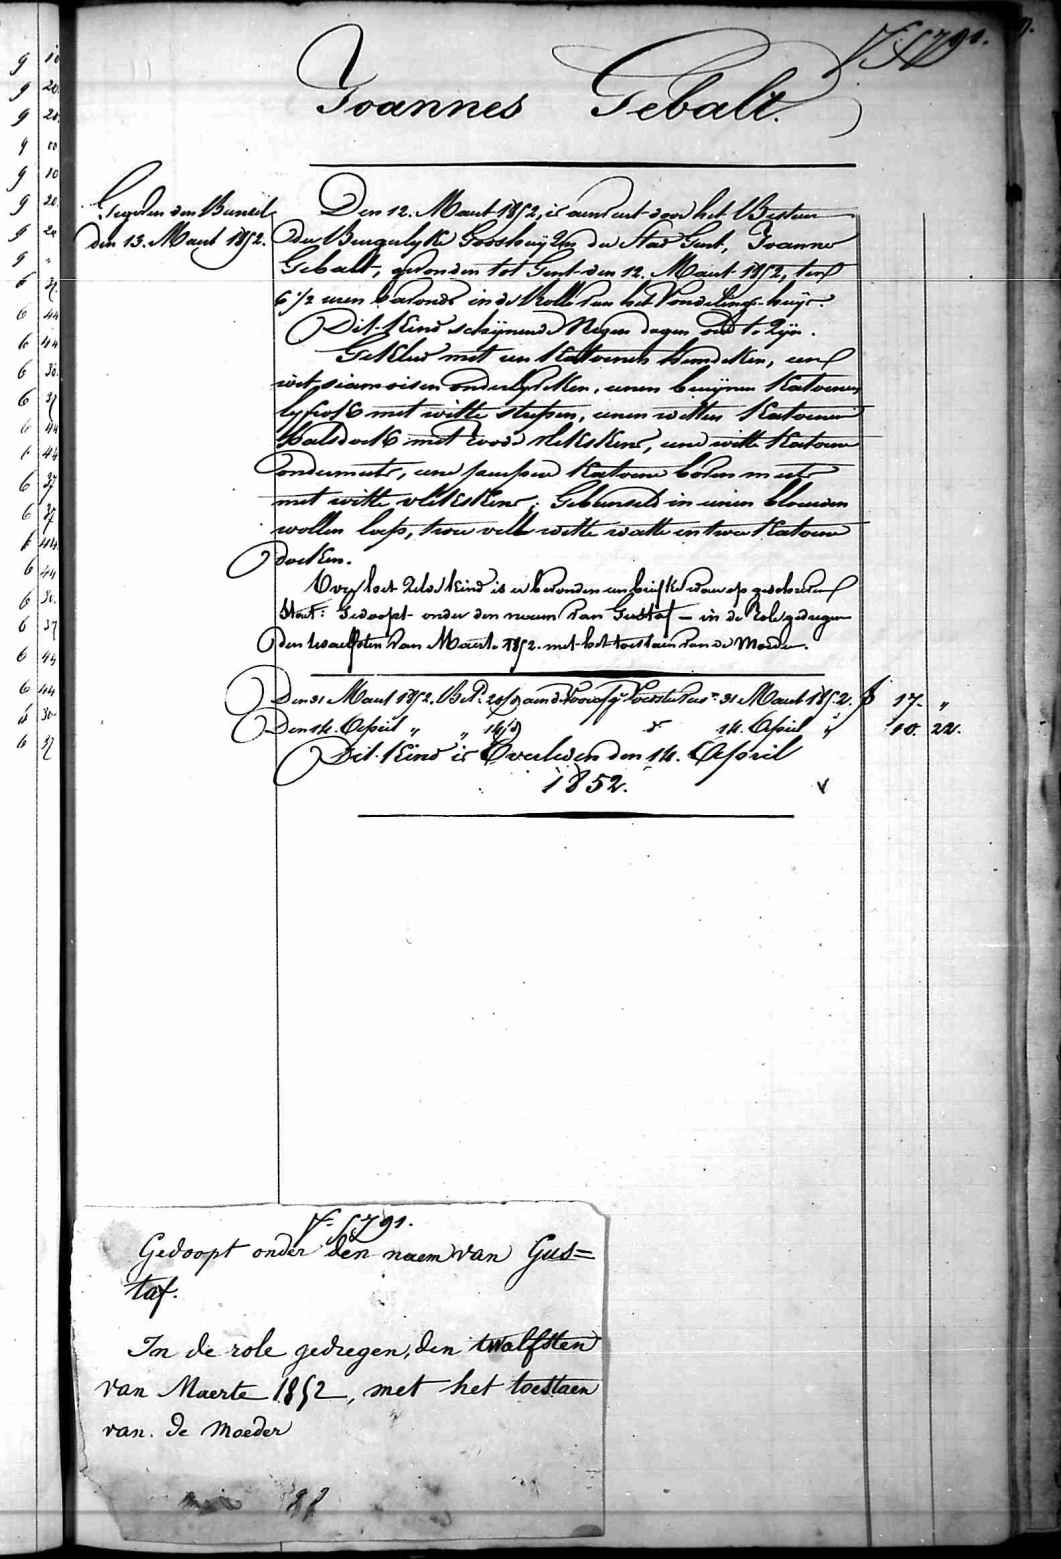 Joannes Gebalt.
Gegeven den Buneil
den 13. Maart 1852.
Den 12. Maart 1852, is aenveert door het Bestuer
der Burgelyke Godshuyzen der Stad Gent, Joannes
Gebalt, gevonden tot Gent den 12. Maart 1852, ten
6 1/2 uren s'avonds in de Rolle van het Vondelings-huys.
Dit Kind schynende Negen dagen oud te zyn.
Gekleed met een Katoenen hemdeken, een
wit siamoisen onderlyfken, eenen bruynen Katoenen
lyfrok met witte strepen, eenen witten Katoenen
halsdoek met roode vlekskens, eene witte Katoene
ondermuts, eene purpere Katoene boven muts
met witte vlekskens. Gebunseld in eenen blauwen
wollen laps, twee witte watte en twee Katoene
doeken.
Over het zelve kind is er bevonden een briefke waer op geschreven
Staet: Gedoopt onder den naem van Gustaf – in de Role gedregen
den twaelfsten van Maerte 1852. met het toestaen van de Moeder.
Den 31 Maart 1852. 31 Maart 1852. 17 - "
Den 14. April " " 14. April " 10. 22.
Dit Kind is Overleden den 14. April
1852.
5791.
Gedoopt onder den naem van Gus=
taf.
In de role gedregen, den twalfsten
van Maerte 1852, met het toestaen
van de Moeder